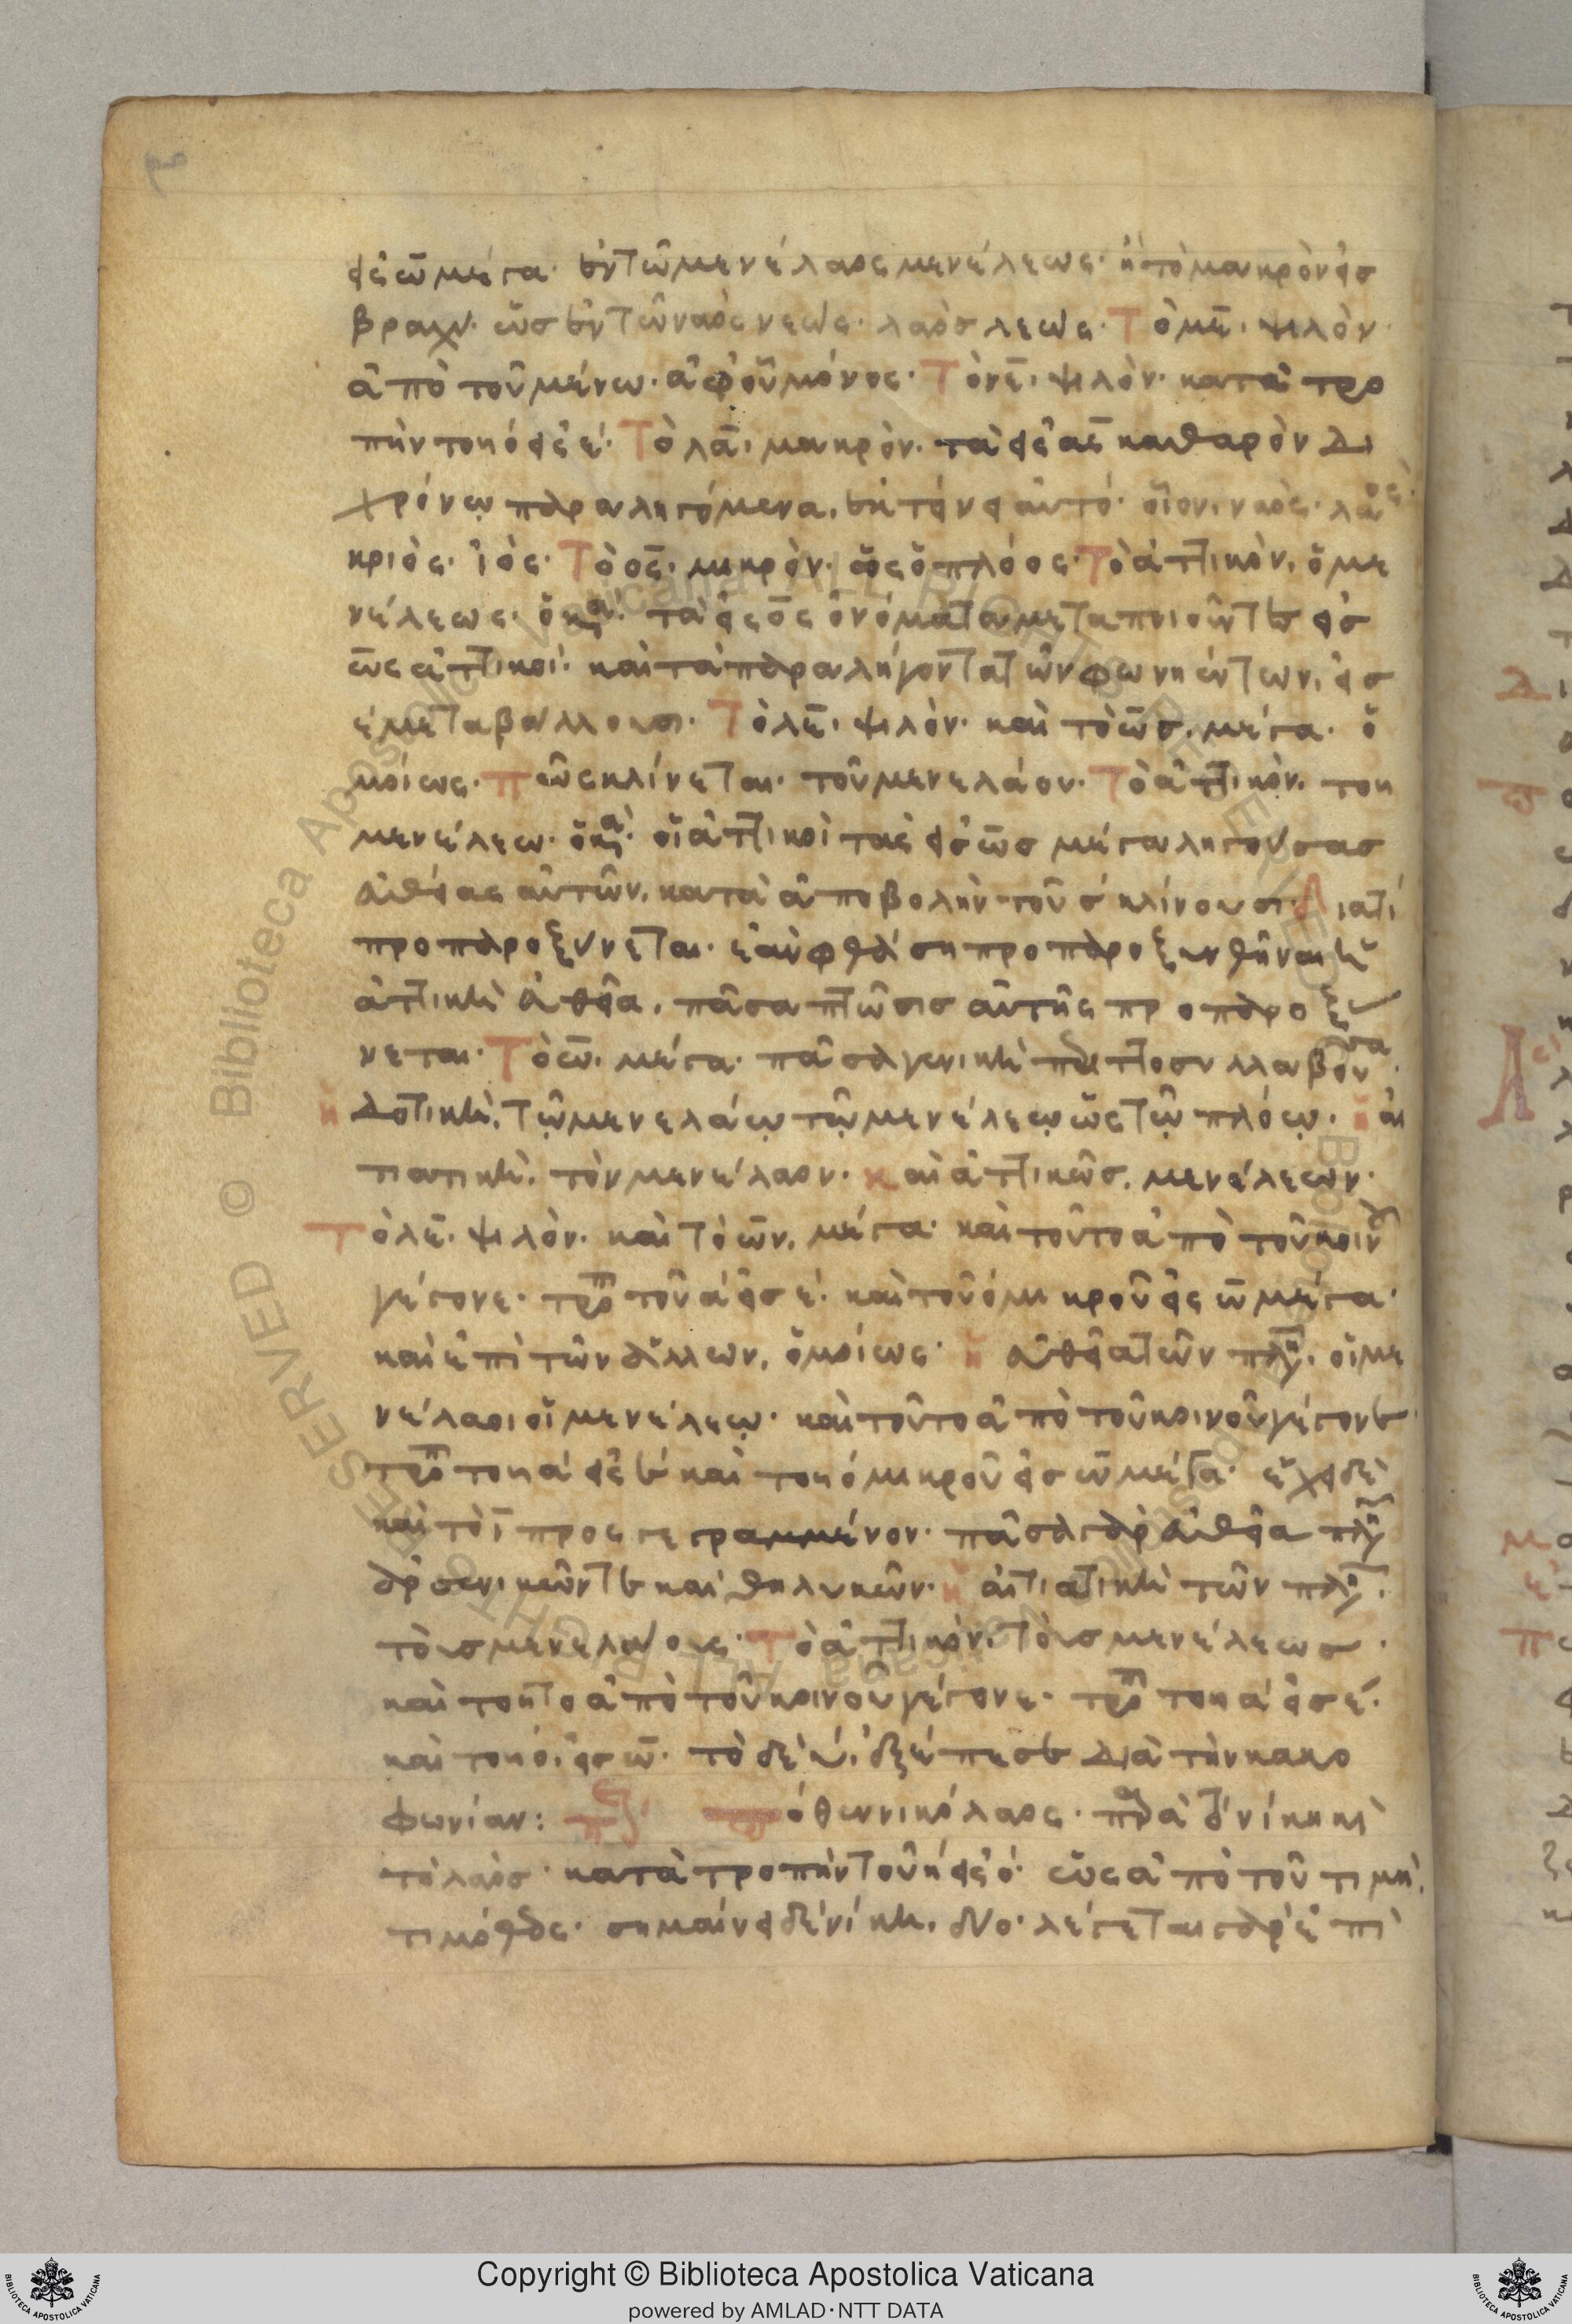 εἰς ω̅ μέγα· ἐν τῶ μενέλαος μενέλεως· ἢ τὸ μακρὸν εἰσ
βραχύ· ὡσ ἐν τῶ ναὸς νεώς· λαὸσ λεώς· Τὸ με̅· ψιλὸν·
ἀπὸ τοῦ μένω· ἀφ' οὗ μόνος· Τὸ νε̅· ψιλὸν· κατὰ τρο
πὴν τοῦ ό εἰς έ· Τὸ λα̅· μακρὸν· τὰ εἰς ας καθαρὸν δι
χρόνω παραληγόμενα, ἐκτείνει αὐτό· οἷον, ναὸς· λαὸς·
κριὸς· ἰός· Τὸ ος̅· μικρὸν· ὡς ὁ πλόος· Τὸ ἀττικὸν, ὁ με
νέλεως· ὁ κα· τὰ εἰς ος̅ ὀνόματα μεταποιοῦντες εἰσ
ω̅ς ἀττικοί· καὶ τὰ παραλήγοντα τῶν φωνηέντων, εἰσ
έ μεταβάλλουσι· Τὸ λε̅· ψιλὸν· καὶ τὸ ω̅σ, μέγα· ὁ
μοίως· πῶς κλίνεται· τοῦ μενελάου· Τὸ ἀττικὸν· τοῦ
μενέλεω· ὁ κα· οἱ ἀττικοὶ τὰς εἰς ω̅σ μέγα ληγούσασ
εὐθείας αὐτῶν, κατὰ ἀποβολὴν τοῦ σ́ κλίνουσι· Διατί
προπαροξύνεται· ἐὰν φθάση προπαροξυνθῆναι ἡ
ἀττικὴ εὐθεῖα, πᾶσα πτῶσισ αὐτῆς προπαροξύ
νεται· Τὸ ω̅· μέγα· πᾶσα γενικὴ
δοτικὴ, τῶ μενελάω τῶ μενέλεω ὡς τῶ πλόω· ἡ αἰ
τιατικὴ, τὸν μενέλαον· καὶ ἀττικῶσ, μενέλεων·
Τὸ λε̅· ψιλὸν· καὶ τὸ ω̅ν, μέγα· καὶ τοῦτο ἀπὸ τοῦ κοινοῦ
γέγονε· τροπῆ τοῦ ά εἰσ έ· καὶ τοῦ ό μικροῦ εἰς ω̅ μέγα·
καὶ ἐπὶ τῶν ἄλλων, ὁμοίως· ἡ εὐθεῖα τῶν πλη, οἱ με
νέλαοι οἱ μενέλεω· καὶ τοῦτο ἀπὸ τοῦ κοινοῦ γέγονεν·
τροπῆ τοῦ ά εἰς έ καὶ τοῦ ό μικροῦ εἰσ ω̅ μέγα· ἔχει δὲ
καὶ τὸ ι̅ προσγεγραμμένον· πᾶσα γὰρ εὐθεῖα πλη
ἀρσενικῶν τε καὶ θηλυκῶν· ἡ αἰτιατικὴ τῶν πλη·
τοὺσ μενελάους· Τὸ ἀττικὸν, τοὺσ μενέλεωσ·
καὶ τοῦτο ἀπὸ τοῦ κοινοῦ γέγονε· τροπῆ τοῦ ά εἰσ έ·
καὶ τοῦ ό, εἰσ ω̅· τὸ δὲ ύ, ἐξέπεσε διὰ τὴν κακο
φωνίαν: πόθεν νικόλαος· παρὰ τὸ νίκη καὶ
τὸ λαὸσ· κατὰ τροπὴν τοῦ ή εἰς ό· ὡς ἀπὸ τοῦ τιμή,
τιμόθεος· σημαίνει δὲ νίκη, δύο· λέγεται γὰρ ἐπὶ